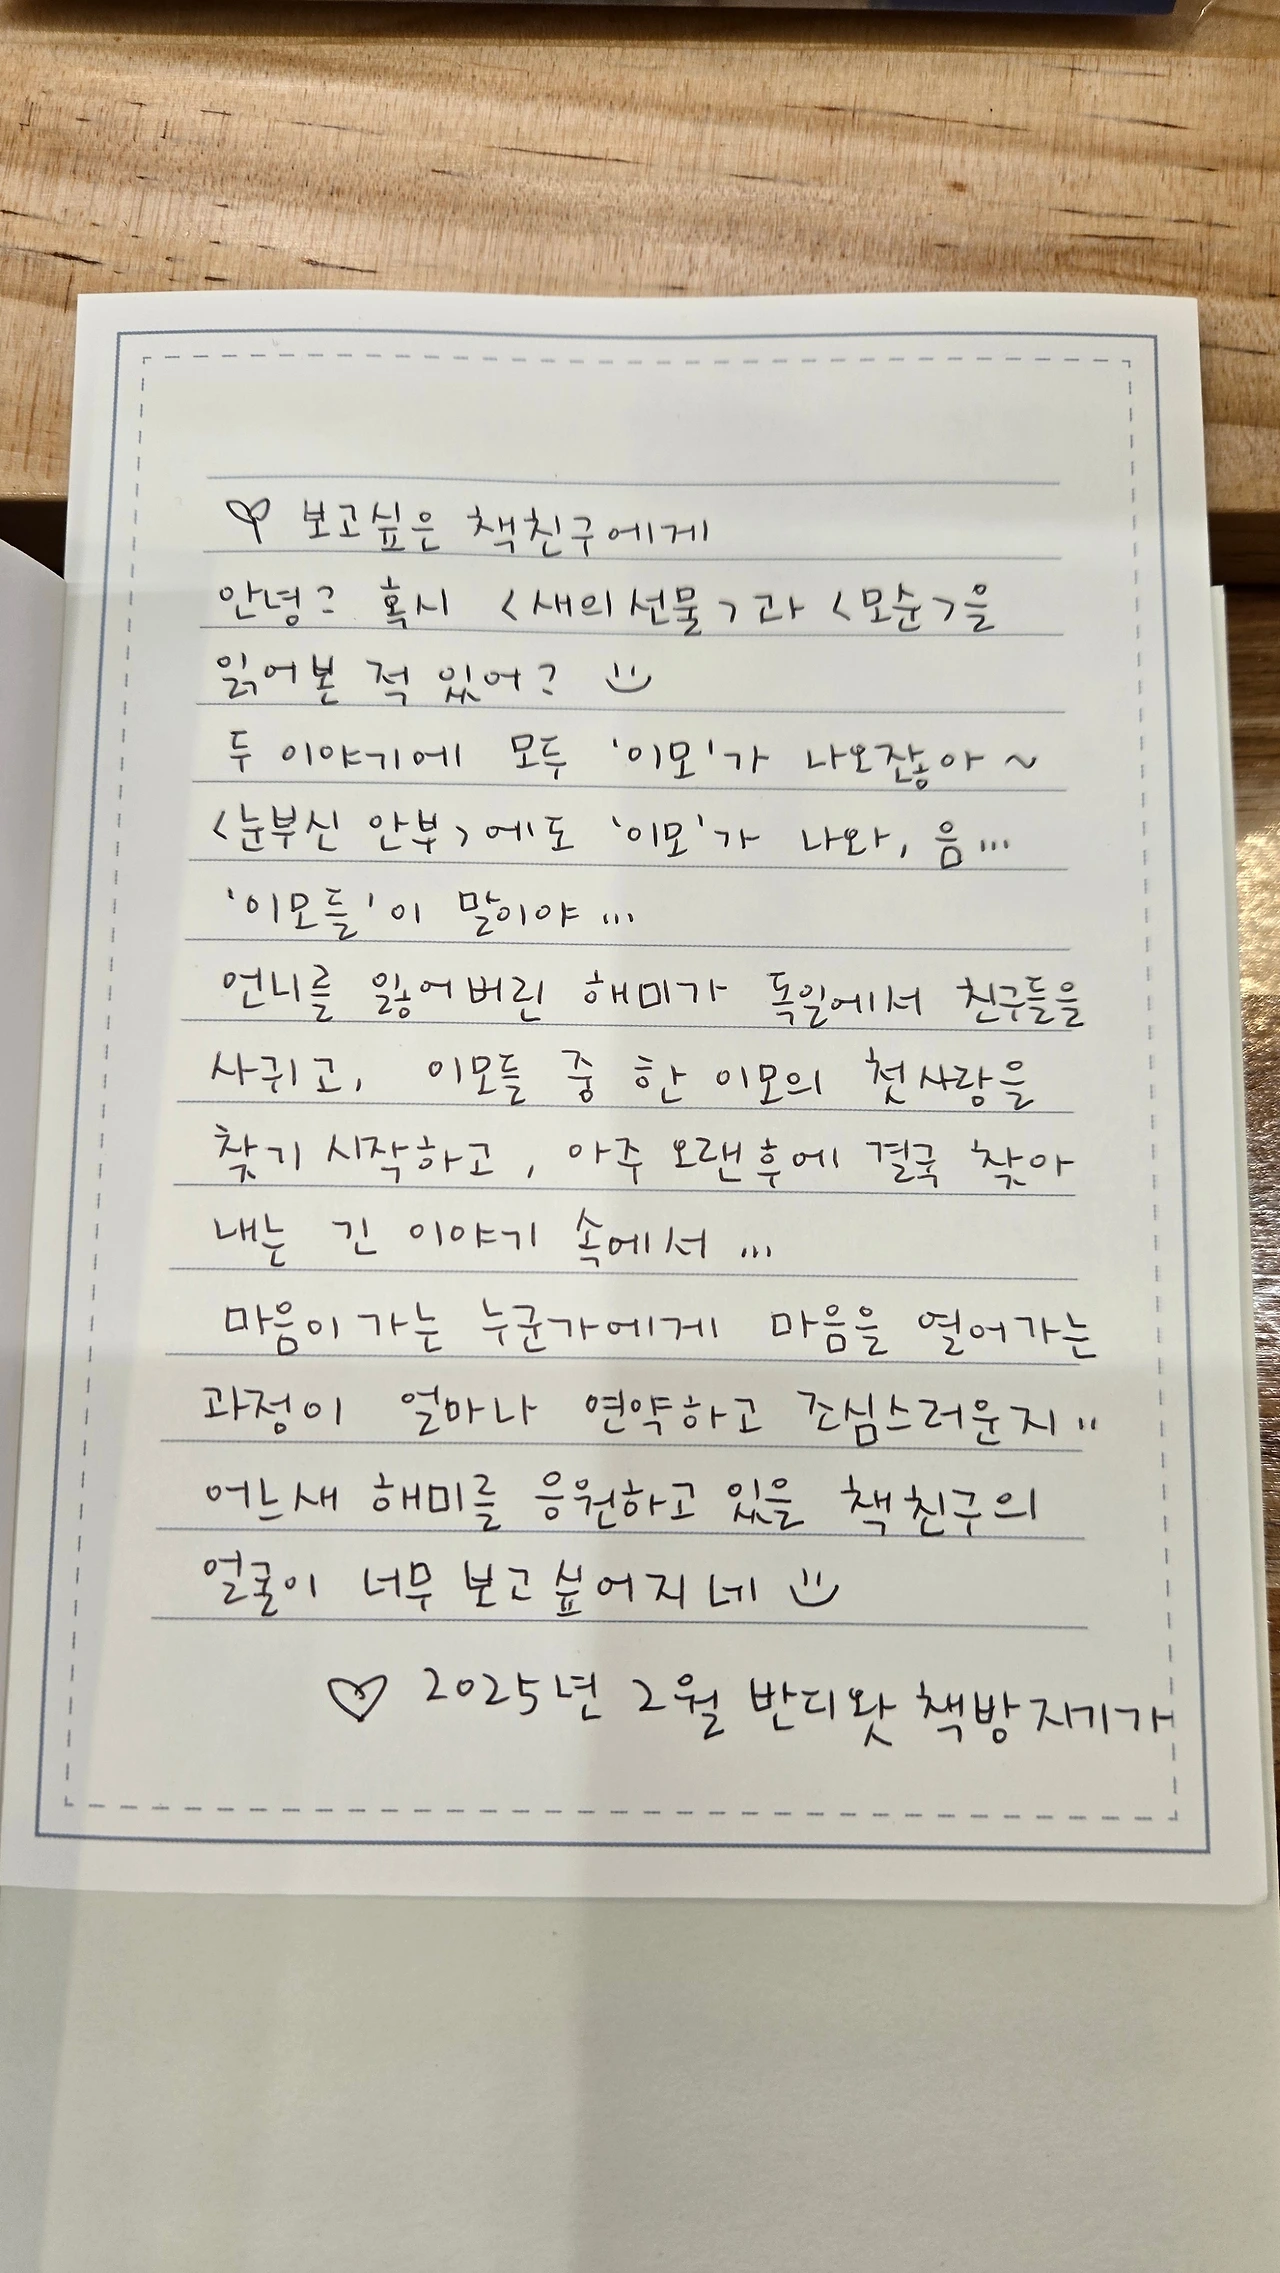 ♡ 보고싶은 책친구에게
안녕? 혹시 <새의선물>과 <모순>을
읽어본 적 있어? ☺
두 이야기에 모두 '이모'가 나오잖아~
<눈부신 안부>에도 '이모'가 나와, 음...
'이모들'이 말이야...
언니를 잃어버린 해미가 독일에서 친구들을
사귀고, 이모들 중 한 이모의 첫사랑을
찾기 시작하고, 아주 오랜후에 결국 찾아
내는 긴 이야기 속에서...
마음이 가는 누군가에게 마음을 열어가는
과정이 얼마나 연약하고 조심스러운지..
어느새 해미를 응원하고 있을 책친구의
얼굴이 너무 보고싶어지네 ☺
♡ 2025년 2월 반디왓 책방지기가